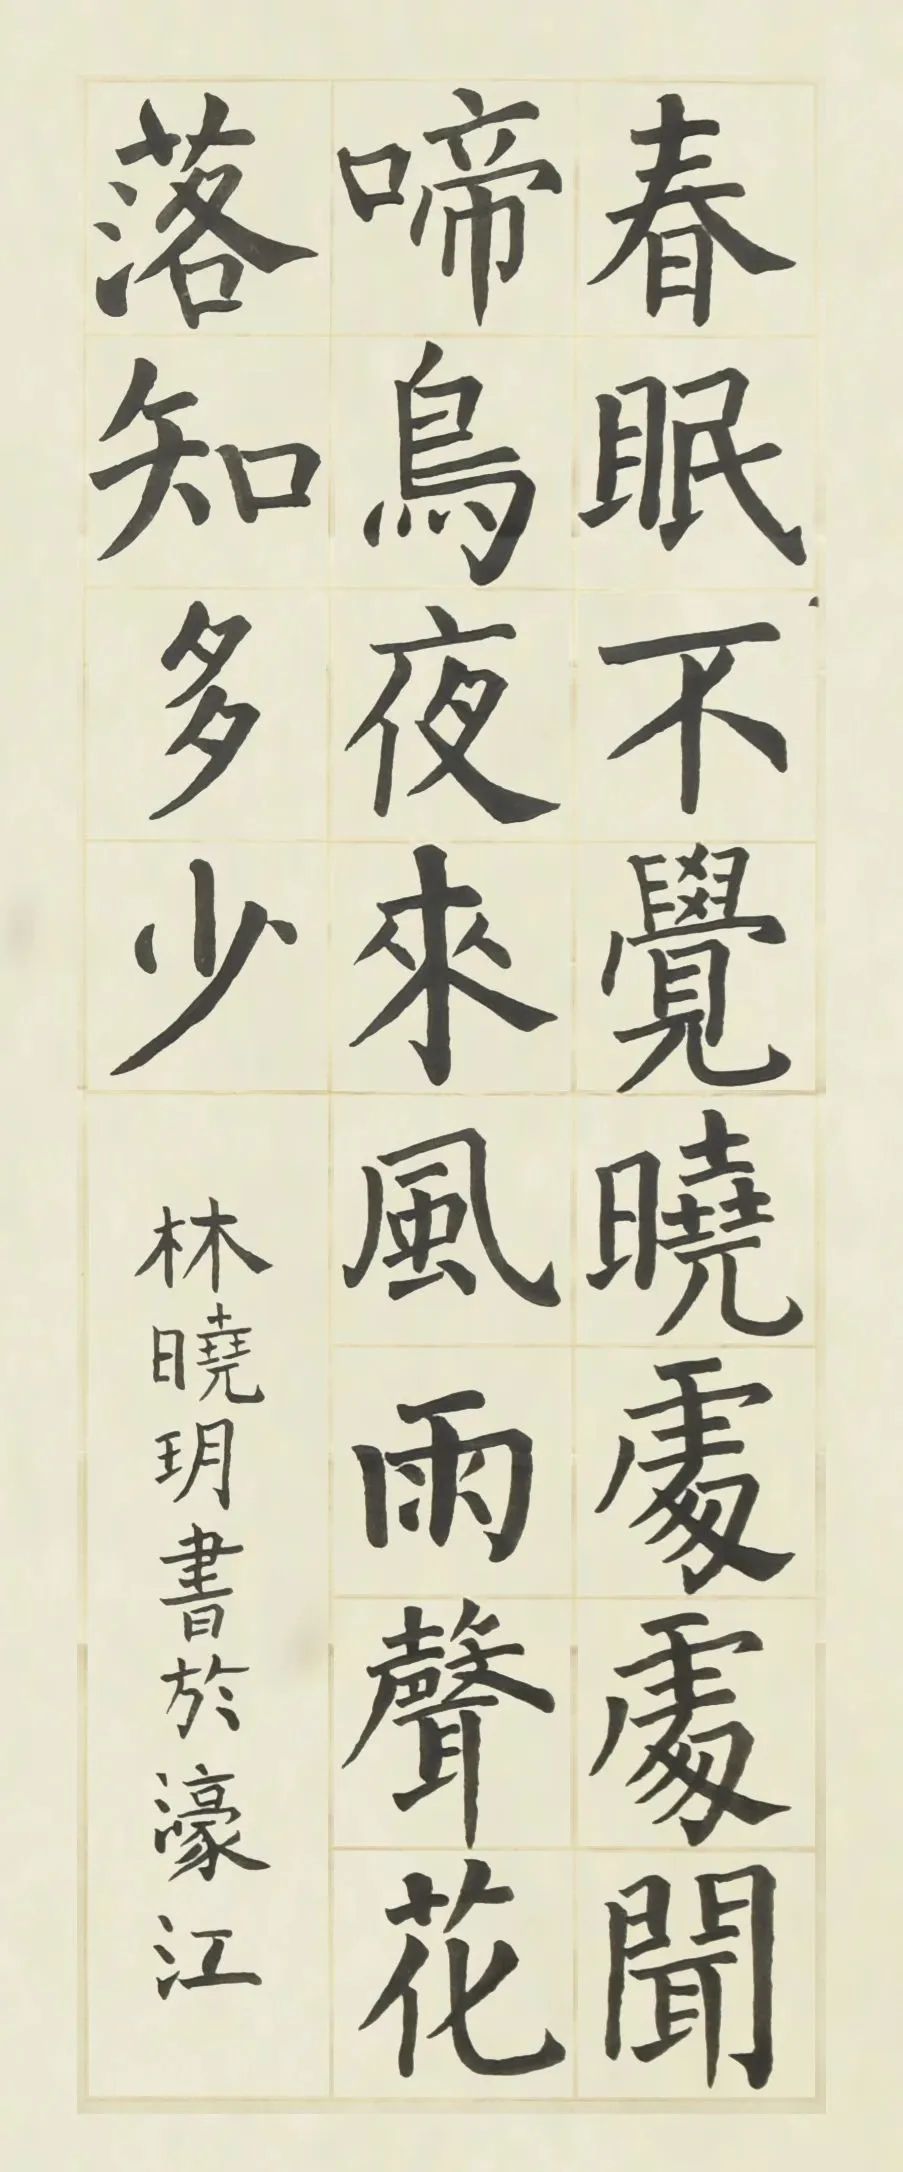 春眠不覺曉處處聞
啼鳥夜來風雨聲花
落知多少
林曉玥書於濠江